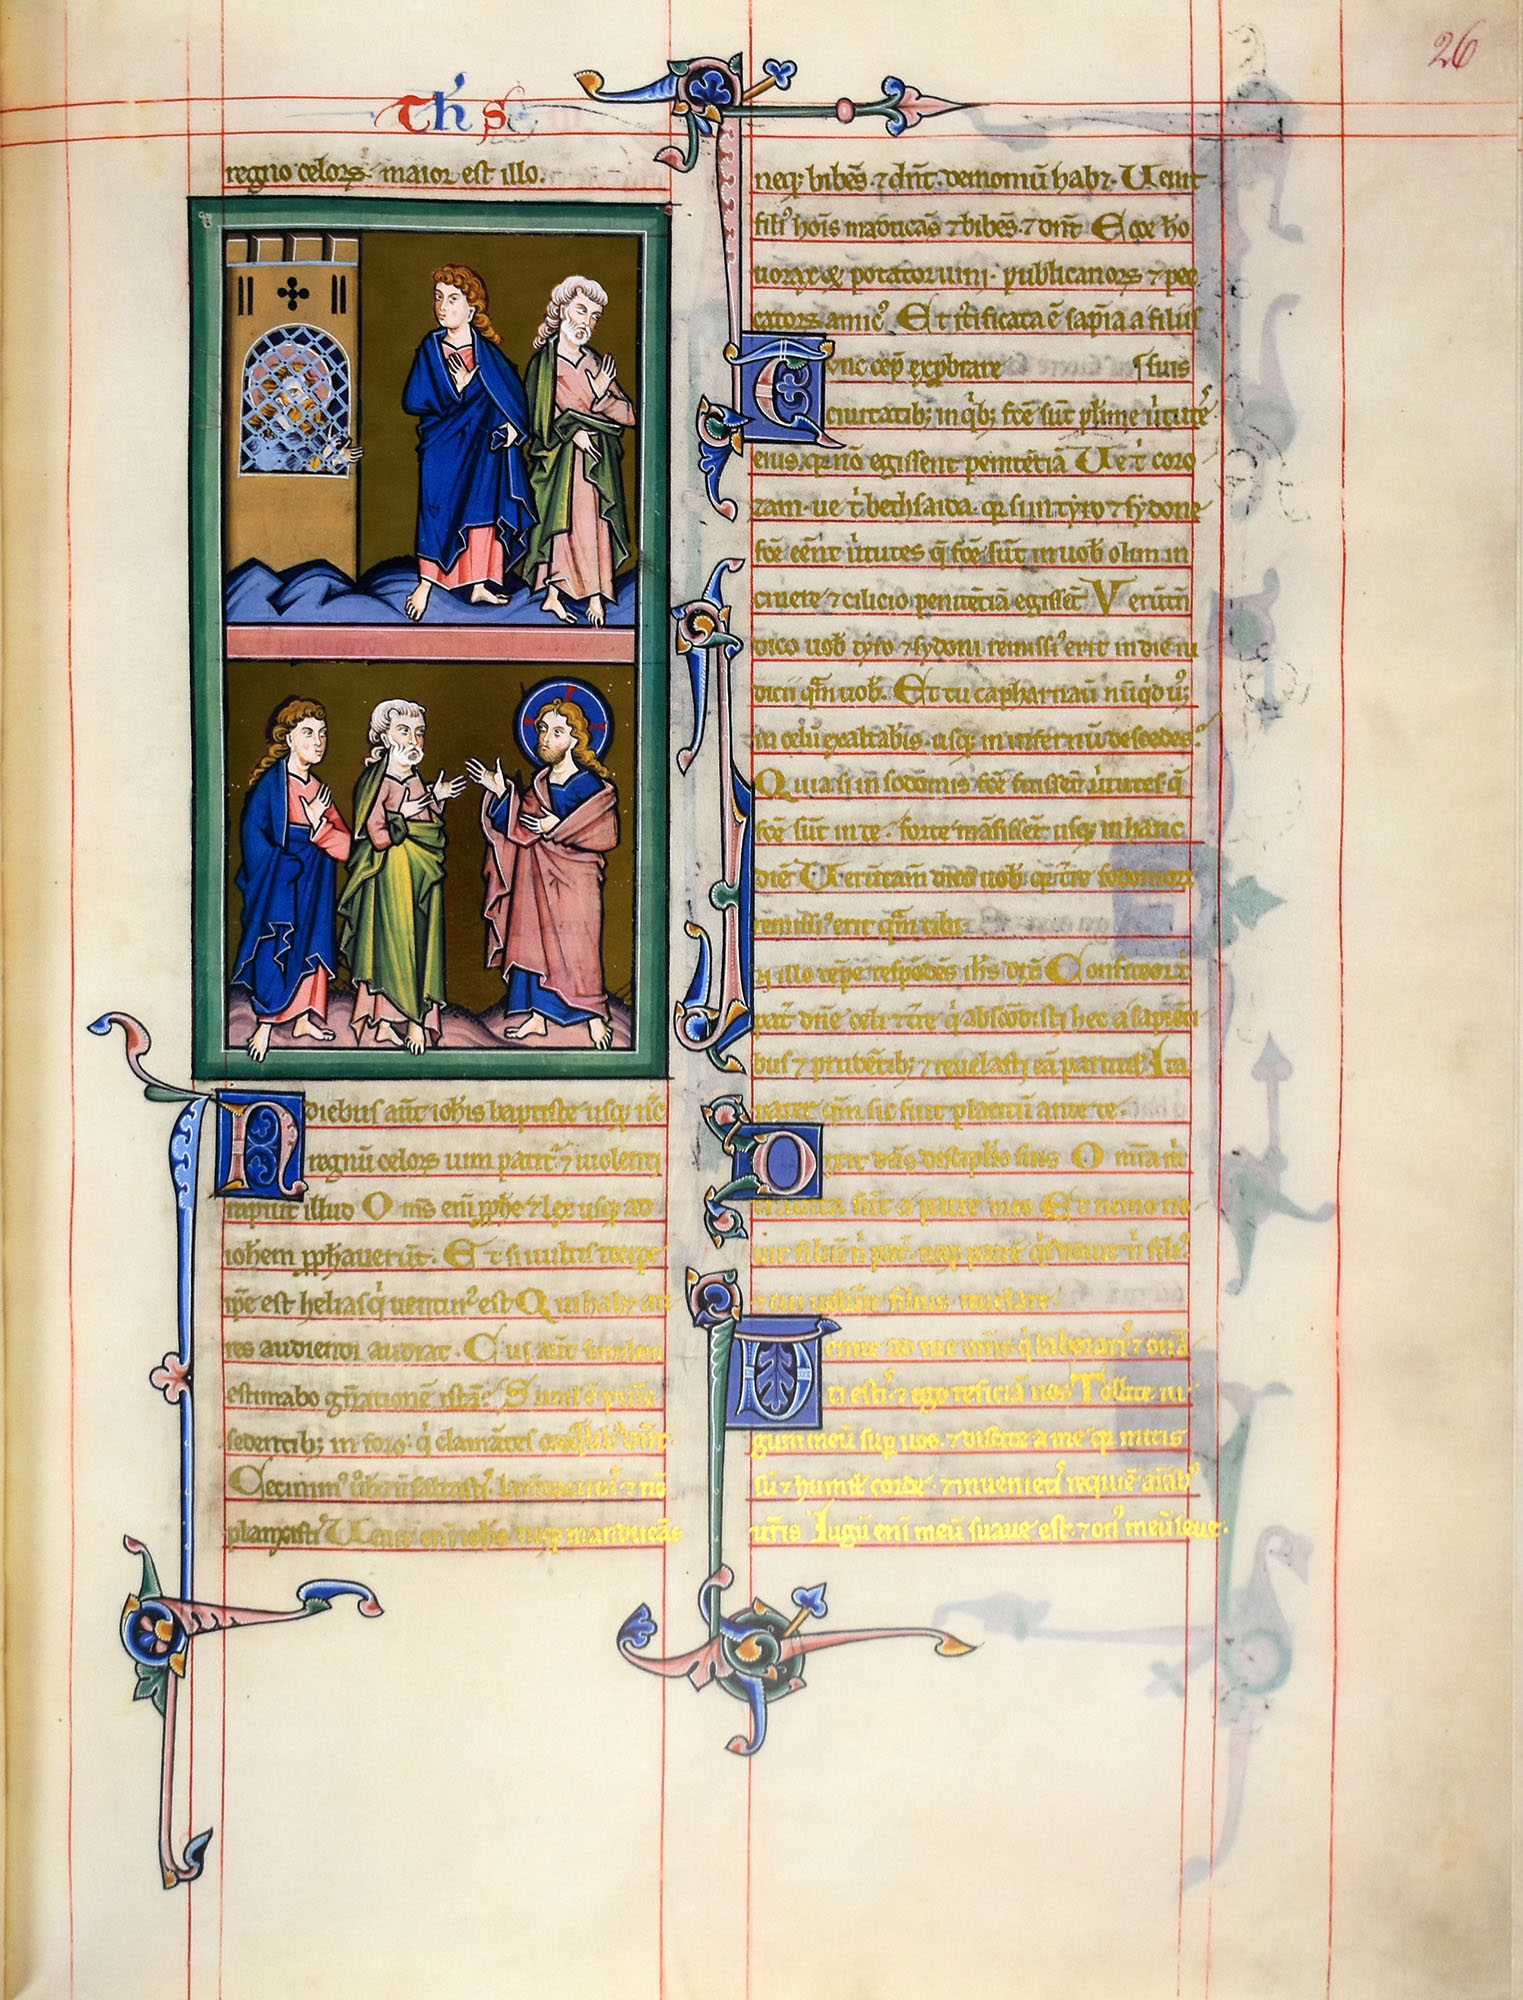 26
Th's
regno celoꝝ maior est illo.
diebus aūt ioh̄is baptiste usq; nc̄
regnū celoꝝ uim patit᷑ ⁊ uiolenti
rapiūt illud O m̄s eni ꝓphē ⁊ lex usq; ad
ioh̄em ꝓph̄auerūt. Et si uultis recipe
ip̄e est helias q̇ uentur᷒ est Qui habꝫ au
res audiendi audiat. Cui aūt similem
estimabo gn̄ationē istā?
sedentib; in foro q̇ clamātes
Cecinim᷒ uob̄ ⁊ nō
planxisti Uenit eni ioh̄s neq; manducās
neq; bibēs ⁊ dn̄t. demoniū habꝫ. Uenit
fili᷒ hoīs māducās ⁊ bibēs. ⁊ dn̄t Ecce ho
uorax & potator uini. publicanoꝝ ⁊ pec
catoꝝ amic᷒. Et iustificata ē sapīa a filiis
Tunc cep̄ exprobrare suis
ciuitatib; in q̇b; fcē sūt plime u̇tutes
eius, qr nō egissent penitētiā Ue t̄ coro
zam. ue t̄ bethsaida. qr si in tyro ⁊ sydone
fcē eēnt u̇tutes q̄ fcē sūt in uob̄ olim in
cinere ⁊ cilicio penitētiā egissēt Verūtn̄
dico uob̄ tyro ⁊ sydoni remissi᷒ erit in die iu
dicii qm̄ uob̄. Et tu capharnaū nūq̇d us;
in celū exaltabis. usq; in infernū descedes.
Quia si in sodomis fcē fuissēt u̇tutes q̄
fcē sūt in te. forte māsissēt usq; in hanc
diē Uerūtam̄ dico uob̄ qr tr̄e sodomoꝝ
remissi᷒ erit qm̄ tibi.
N illo tēpe respōdēs ih̄s dix̄ Confiteor t̄
pat̄ dn̄e celi ⁊ tr̄e q̇ abscōdisti hec a sapiēti
bus ⁊ prudētib; ⁊ reuelasti ea paruul᷒. Ita
pater qm̄ sic fuit placitū ante te.
Dixit disciplis suis O mīa ṁ
tradita sūt a patre meo Et nemo no
uit filiū n̄ pat̄. neq; patrē q̇s nouit n̄ fili᷒.
⁊ cui uoluerit filius reuelare.
Uenite ad me om̄s q̇ laborati᷒ ⁊ onā
ti esti᷒. ⁊ ego reficiā uos. Tollite iu
gum meū sup uos. ⁊ discite a me qr mitis
sū ⁊ humil᷒ corde. ⁊ inuenieti᷒ requiē aīab᷒
ur̄is Iugū eni meū suaue est. ⁊ on᷒ meū leue.